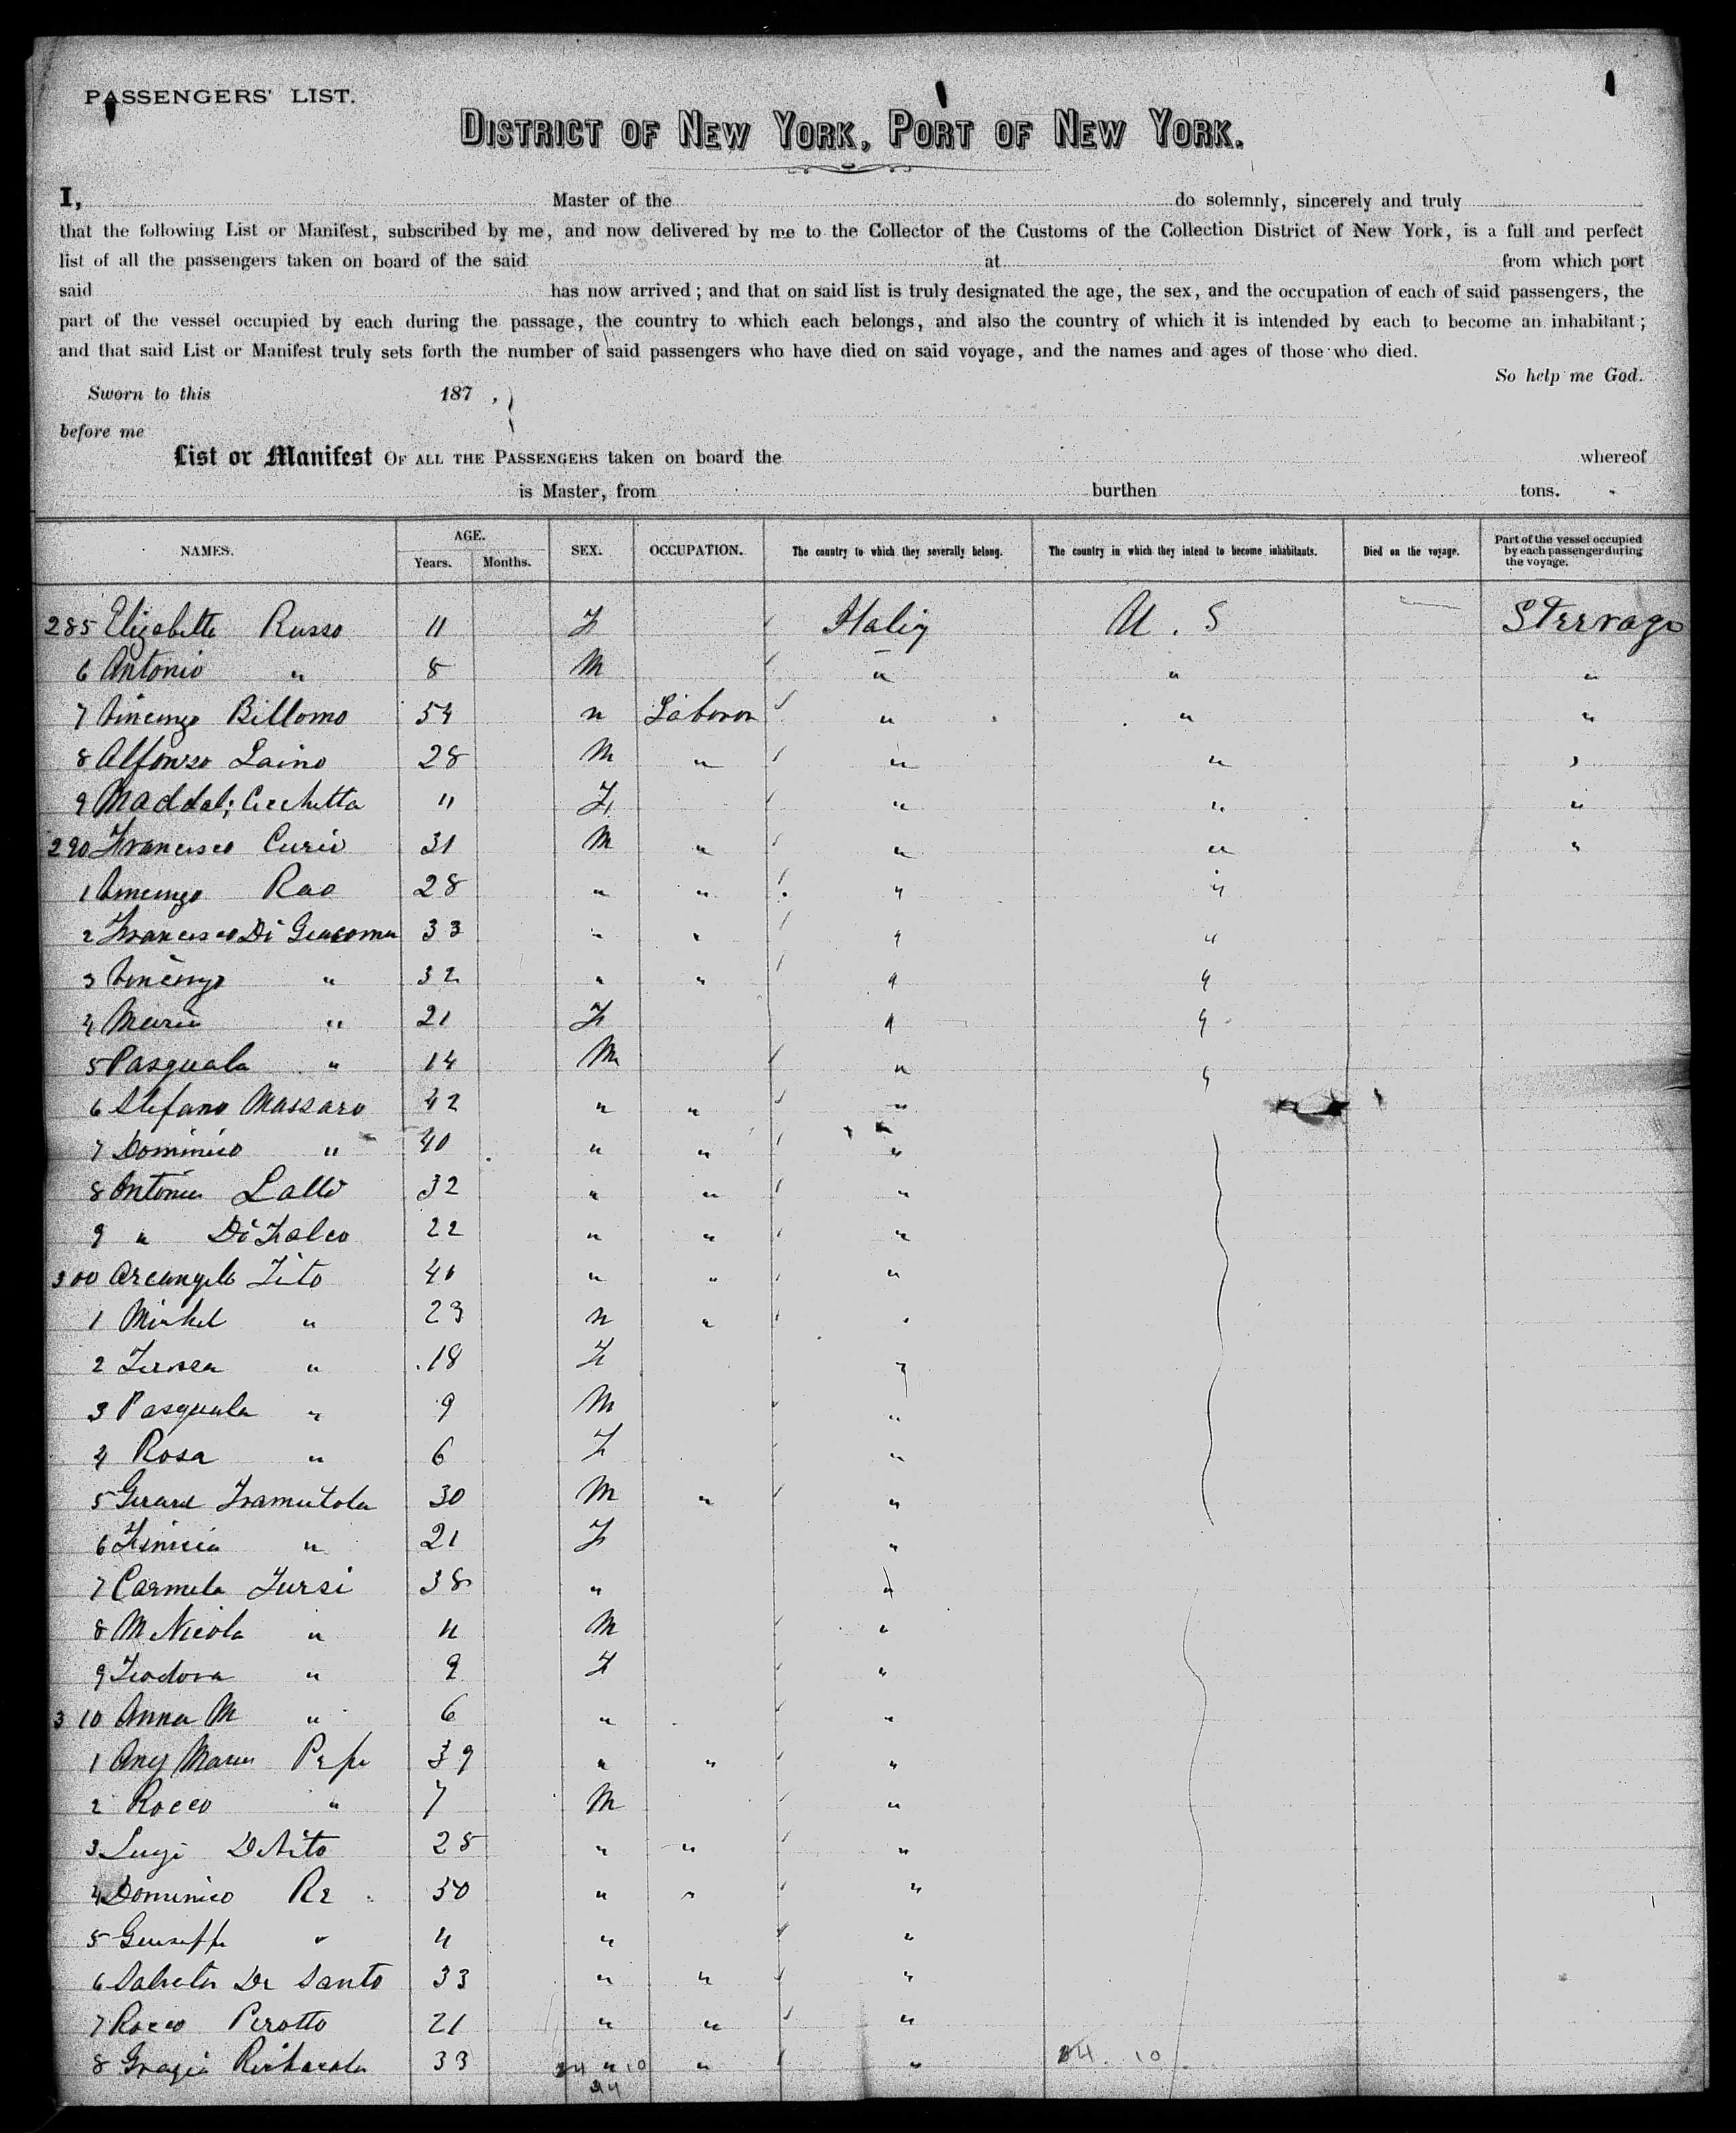 PASSENGERS' LIST.
DISTRICT OF NEW YORK, PORT OF NEW YORK.
I, Master of the do solemnly, sincerely and truly
that the following List or Manifest, subscribed by me, and now delivered by me to the Collector of the Customs of the Collection District of New York, is a full and perfect
list of all the passengers taken on board of the said at from which port
said has now arrived; and that on said list is truly designated the age, the sex, and the occupation of each of said passengers, the
part of the vessel occupied by each during the passage, the country to which each belongs, and also the country of which it is intended by each to become an inhabitant;
and that said List or Manifest truly sets forth the number of said passengers who have died on said voyage, and the names and ages of those who died.
So help me God.
Sworn to this 187 ,
before me
List or Manifest OF ALL THE PASSENGERS taken on board the whereof
is Master, from burthen tons.
NAMES. AGE. Years. Months. SEX. OCCUPATION. The country to which they severally belong. The country in which they intend to become inhabitants. Died on the voyage. Part of the vessel occupied by each passenger during the voyage.
285 Elizabetta Russo 11 F Italy U. S Steerage
6 Antonio " 8 M " " "
7 Vincenzo Billomo 54 " Laborer " " "
8 Alfonso Laino 28 M " " " "
9 Maddal; Cicchetta 11 F " " "
290 Francisco Curio 31 M " " " "
1 Vincenzo Rao 28 " " " "
2 Francisco Di Giacoma 33 " " " "
3 Vincenzo " 32 " " " "
4 Maria " 21 F " "
5 Pasquala " 14 M " "
6 Stefano Massaro 42 " " "
7 Dominico " 40 " " "
8 Antonio Lallo 32 " " "
9 " Di Falco 22 " " "
300 Arcangelo Tito 40 " " "
1 Michel " 23 " " "
2 Teresa " 18 F "
3 Pasquala " 9 M "
4 Rosa " 6 F "
5 Gerard Tramutola 30 M " "
6 " 21 F "
7 Carmela Tursi 38 " "
8 M Nicola " 11 M "
9 Teodora " 9 F "
310 Anna M " 6 " "
1 Ang Maria Pepe 39 " " "
2 Rocco " 7 M "
3 Luigi DeVito 28 " " "
4 Dominico Re 50 " " "
5 Giuseppe " 11 " "
6 Salvator De Santo 33 " " "
7 Rocco Perotto 21 " " "
8 Grazia 33 " " "
24 10 24. 10
24